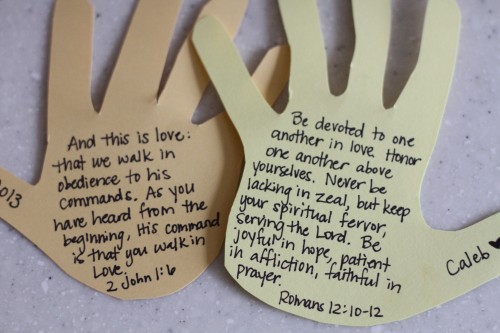 And this is love:
that we walk in
obedience to his
commands. As you
have heard from the
beginning, His command
is that you walk in
Love.
2 John 1:6
013
Be devoted to one
another in love. Honor
one another above
yourselves. Never be
lacking in zeal, but keep
your spiritual fervor,
serving the Lord. Be
joyful in hope, patient
in affliction, faithful in
prayer.
Romans 12:10-12
Caleb ♥